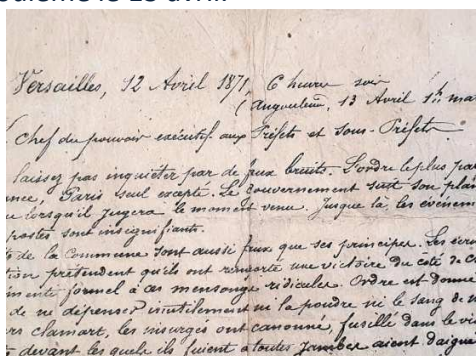 Versailles, 12 Avril 1871, 6 heure soir
(Angoulême, 13 Avril 1h ma
Chef du pouvoir exécutif aux Préfets et Sous-Préfets.
laissez pas inquiéter par de faux bruits. L'ordre le plus par
ance, Paris seul excepté. Le Gouvernement suit son plan
lorsqu'il jugera le moment venu. Jusque là, les événem
postes sont insignifiants.
de la Commune sont aussi faux que ses principes. Les écriv
tion prétendent qu'ils ont remporté une victoire du côté de C
formel à ces mensonge ridicules. Ordre est donné
de ne dépenser inutilement ni la poudre ni le sang de n
rs Clamart, les insurgés ont canonné, fusillé dans le vi
devant les quels ils fuient à toutes jambes aient daign